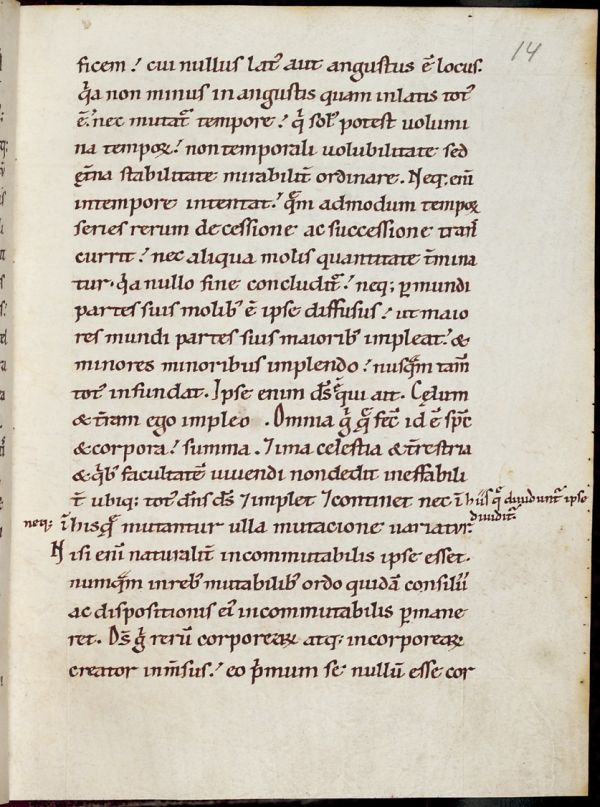 14
ficem? cui nullus lat᷑ aut angustus ē locus.
q̇a non minus in angustis quam in latis tot᷑
ē. nec mutat᷑ tempore? q̇ sol᷑ potest volumi
na tempoꝝ? non temporali volubilitate sed
ęt̄na stabilitate mirabilit̄ ordinare. Neq; eni̅
in tempore intentat? quē admodum tempoꝝ
series rerum decessione ac successione trans̄
currit? nec aliqua molis quantitate t̄mina
tur. q̇a nullo fine concludit᷑? neq; p̄ mundi
partes suis molib; ē ipse diffusus? ut maio
res mundi partes suis maiorib; impleat? &
minores minoribus implendo? nusqȧm tam̄
tot᷑ infundat. Ipse enim ds̄ qui ait. Cęlum
& t̄ram ego impleo. Omnia g̊ q̄ fec̄ id ē sp̄c
& corpora? summa. ⁊ ima celestia & t̄restria
& q̇b; facultatē vivendi non dedit ineffabili
t̄ ubiq; tot᷑ dn̄s ds̄ ⁊ implet ⁊ continet nec ī hiis q̄ dividunt᷑ ipse
dividit᷑
neq; ī his q̄ mutantur ulla mutacione variatur.
Nisi eni̅ naturalit̄ incommutabilis ipse esset.
numqȧm in reb; mutabilib; ordo quidā consilii
ac dispositionis ei᷑ incommutabilis p̄mane
ret. Ds̄ g̊ rerū corporearꝝ atq; incorporearꝝ
creator inm̄sus? eo ṗmum se nullū esse cor